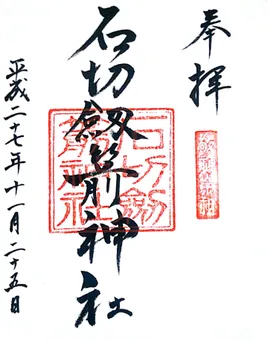 奉拝
石切劔箭神社
平成二十七年十一月二十五日
石切劔
箭神社